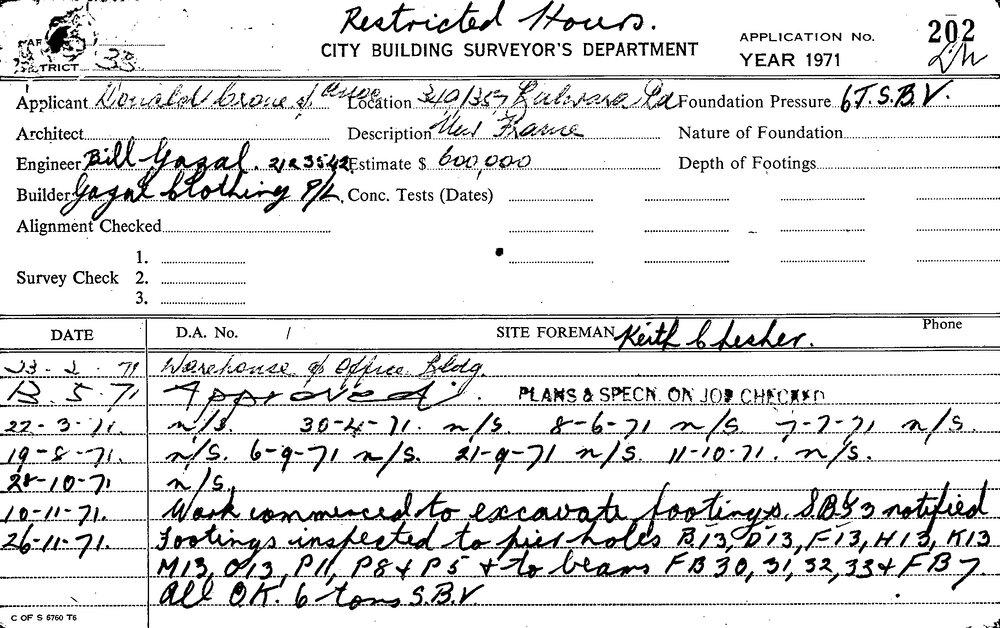 Restricted Hours.
CITY BUILDING SURVEYOR'S DEPARTMENT
APPLICATION No. 202
YEAR 1971
DISTRICT 33
Applicant Donald Crone & Assoc Location 340/357 Bulwara Rd Foundation Pressure 6 T.S.B.V.
Architect Description New Frame Nature of Foundation
Engineer Bill Gazal. 212 3542 Estimate $ 600,000 Depth of Footings
Builder Gazal Clothing P/L. Conc. Tests (Dates)
Alignment Checked
1.
Survey Check 2.
3.
DATE D.A. No. / SITE FOREMAN Keith Chesher. Phone
23-2-71 Warehouse & Office Bldg.
5.71 Approved. PLANS & SPECN. ON JOB CHECKED
22-3-71. n/S. 30-4-71. n/S. 8-6-71 n/S. 7-7-71 n/S.
19-8-71. n/S. 6-9-71 n/S. 21-9-71 n/S. 11-10-71. n/S.
28-10-71 n/S.
10-11-71. Work commenced to excavate footings. S.B.S 3 notified
26-11-71. Footings inspected to pier holes B13, D13, F13, H13, K13
M13, O13, P11, P8 & P5 & to beams FB 30, 31, 32, 33 & FB 7
All OK. 6 tons S.B.V
C OF S 5760 T6